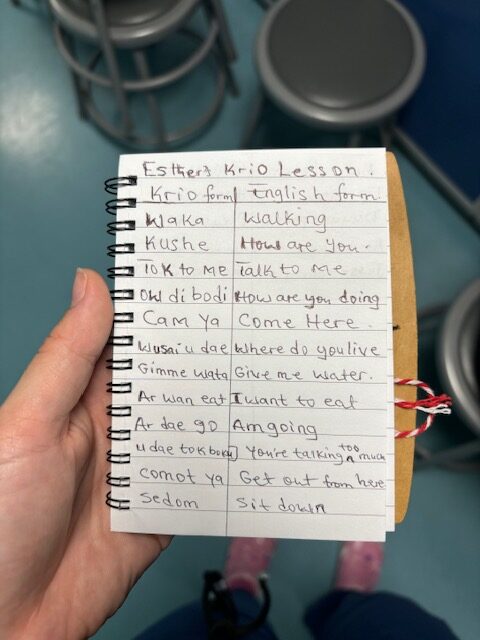 Esther's Krio Lesson:
Krio form English form.
Waka Walking
Kushe How are you.
Tok to me Talk to me
Ow di bodi How are you doing
Cam ya Come Here.
Wusai u dae Where do you live
Gimme wata Give me water.
Ar wan eat I want to eat
Ar dae go Am going
u dae tok boku you're talking too much
comot ya Get out from here
Sedom Sit down